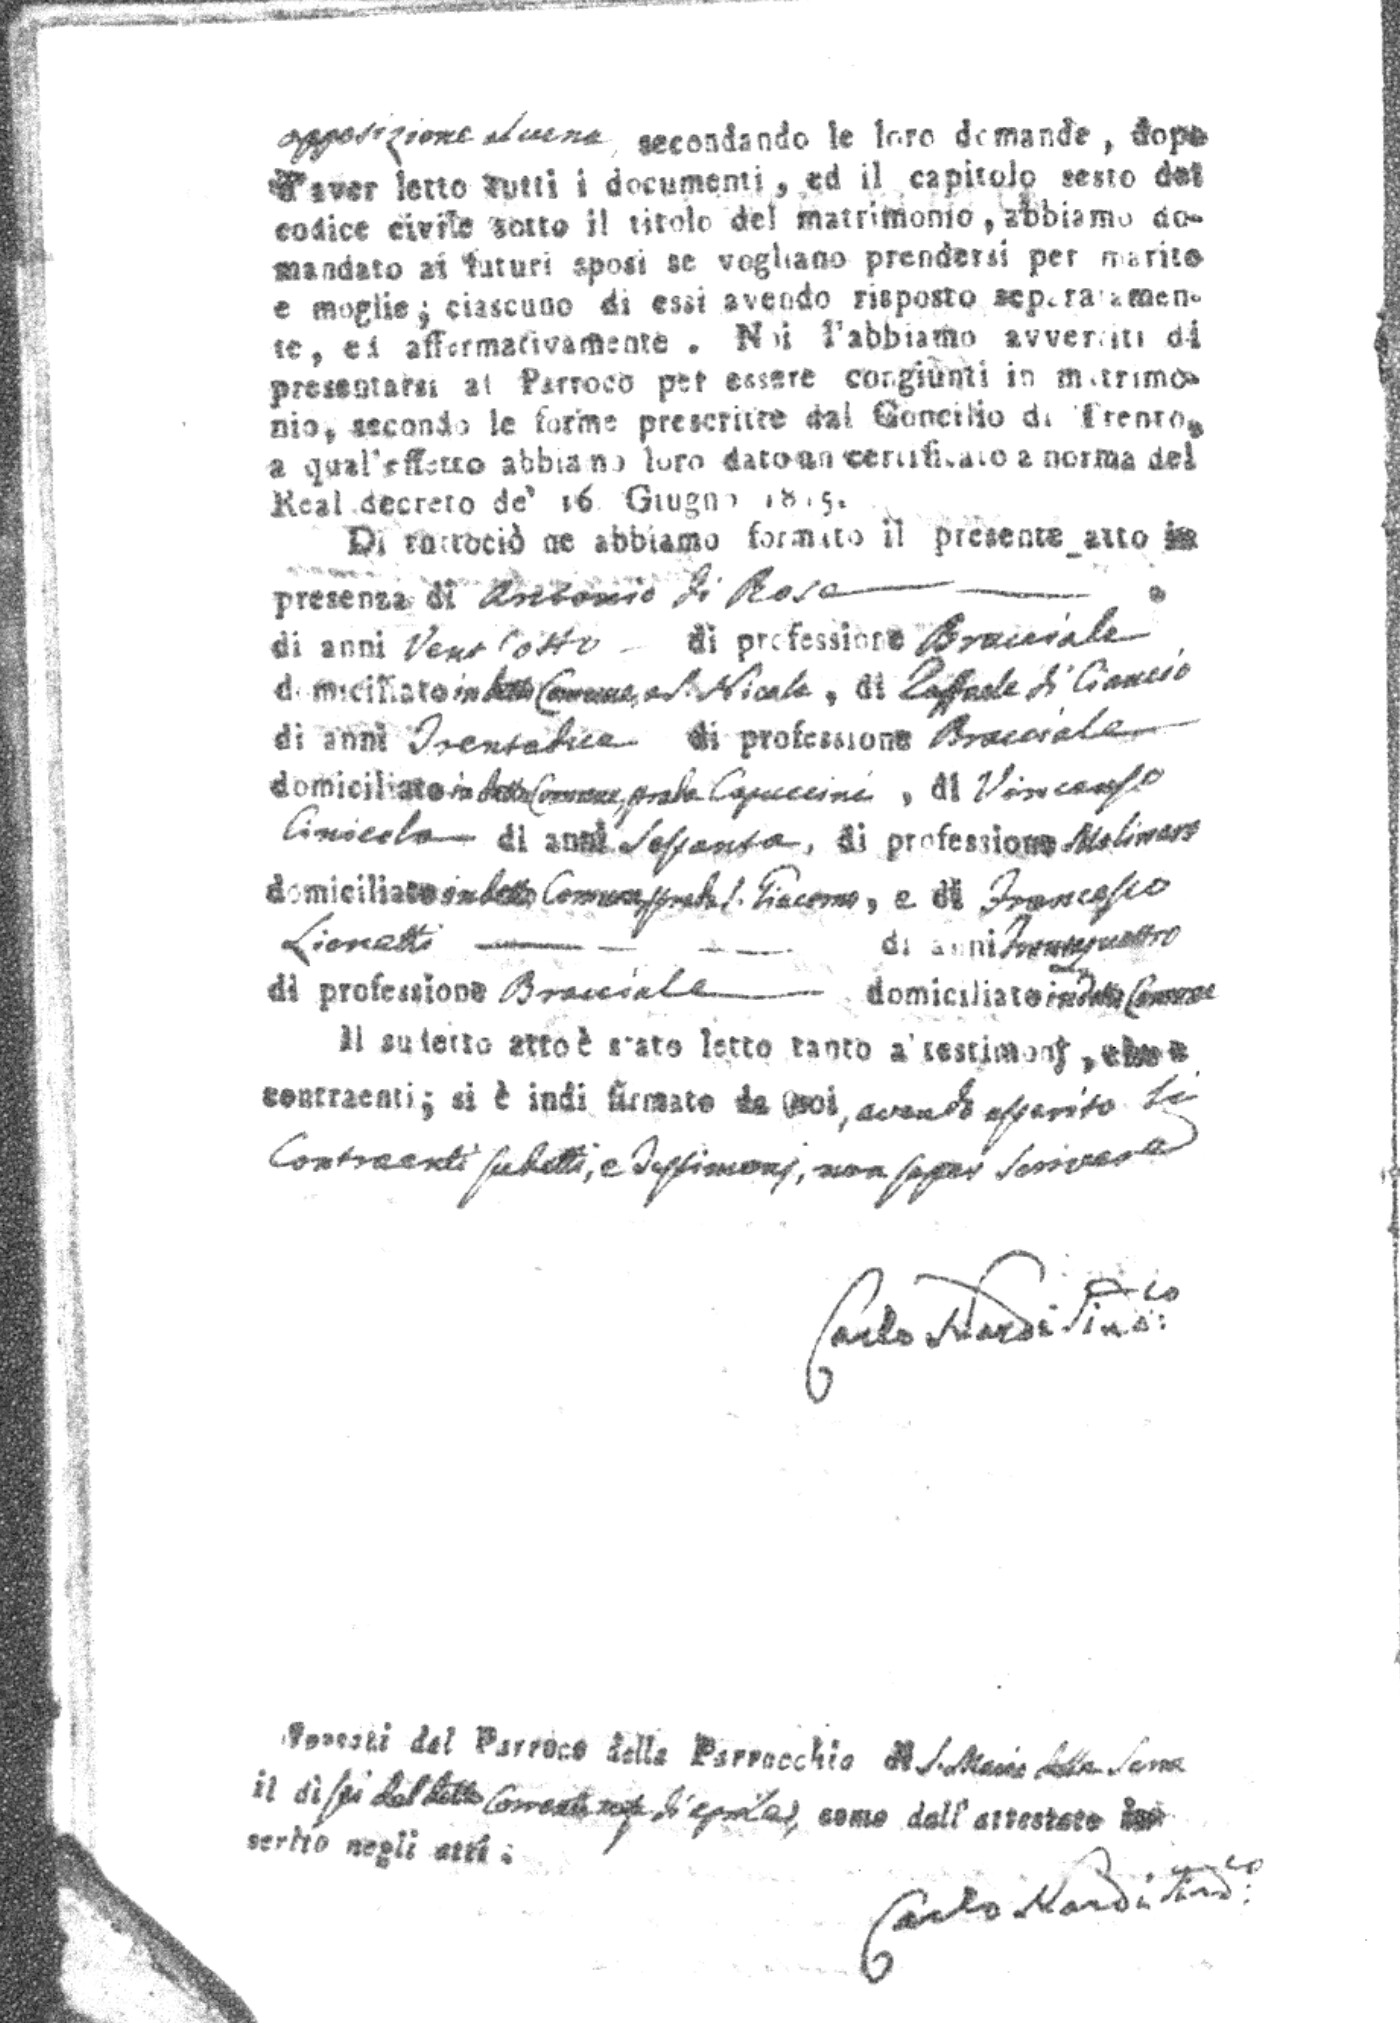 opposizione alcuna, secondando le loro domande, dopo
d'aver letto tutti i documenti, ed il capitolo sesto del
codice civile sotto il titolo del matrimonio, abbiamo do-
mandato ai futuri sposi se vogliano prendersi per marito
e moglie; ciascuno di essi avendo risposto separatamen-
te, ed affermativamente. Noi l'abbiamo avvertiti di
presentarsi al Parroco per essere congiunti in matrimo-
nio, secondo le forme prescritte dal Concilio di Trento,
a qual'effetto abbiamo loro dato un certificato a norma del
Real decreto de' 16 Giugno 1815.
Di tuttociò ne abbiamo formato il presente atto in
presenza di Antonio di Rosa
di anni Vent'otto di professione Bracciale
domiciliato in detto Comune, a S. Nicola, di Raffaele di Ciancio
di anni Trentadue di professione Bracciale
domiciliato in detto Comune, strada Capuccini, di Vincenzo
Cinicola di anni Sessanta, di professione Molinaro
domiciliato in detto Comune, strada S. Giacomo, e di Francesco
Lionetti di anni Trentaquattro
di professione Bracciale domiciliato in detto Comune
Il sudetto atto è stato letto tanto a' testimonj, che a
contraenti; si è indi firmato da noi, avendo asserito li
Contraenti sudetti, e Testimonj, non saper scrivere
Carlo Nardi Sind:co
del Parroco della Parrocchia di S. Maria della
il dì sei del detto Corrente mese di aprile, come dall'attestato in-
serito negli atti:
Carlo Nardi Sind:co